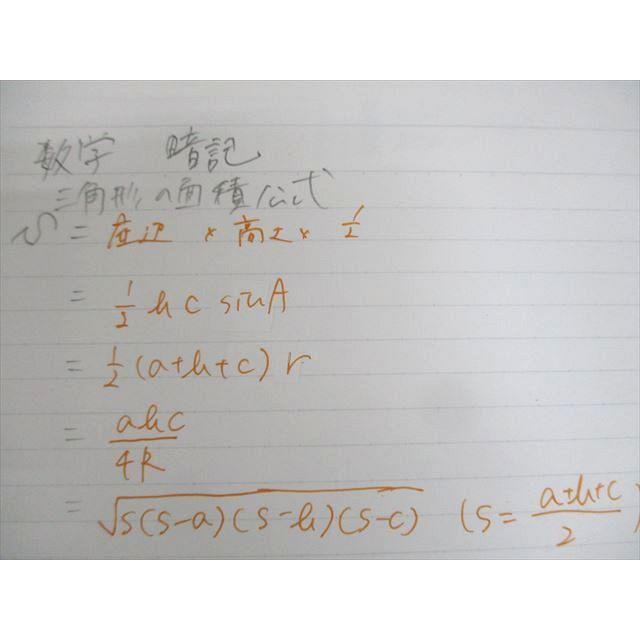 数学 暗記
三角形の面積公式
S = 底辺 × 高さ × 1/2
= 1/2 bc sinA
= 1/2 (a+b+c) r
= abc/4R
= √s(s-a)(s-b)(s-c) (s = a+b+c/2)